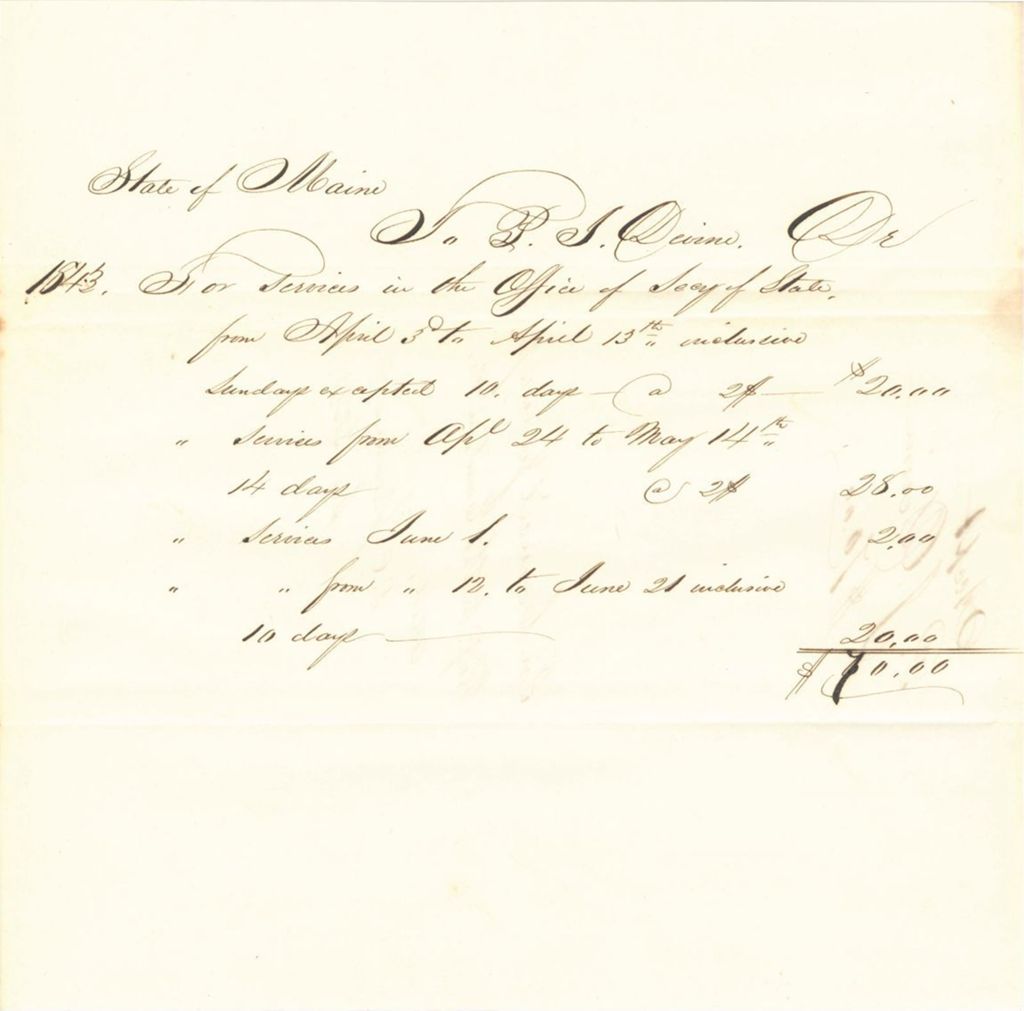 State of Maine
To P. J. Deirne. Dr
1843. For services in the Office of Secy of State,
from April 3d to April 13th inclusive
Sundays excepted 10. days — @ 2$ — $20.00
" services from Apl 24 to May 14th
14 days @ 2$ 28.00
" services June 1. 2.00
" " from " 12. to June 21 inclusive
10 days — 20.00
$70.00